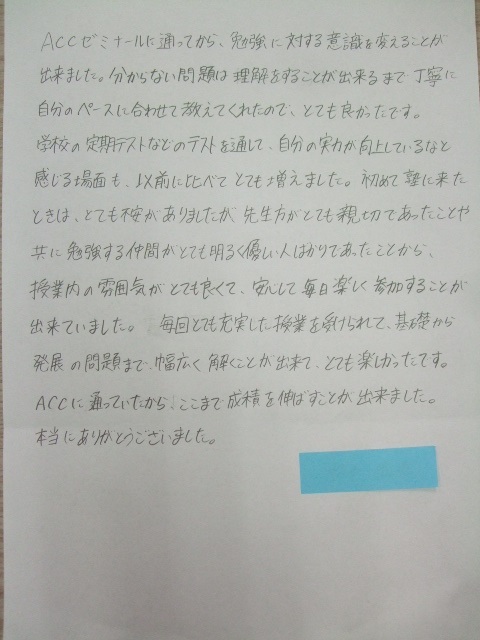 ACCゼミナールに通ってから、勉強に対する意識を変えることが
出来ました。分からない問題は理解をすることが出来るまで丁寧に
自分のペースに合わせて教えてくれたので、とても良かったです。
学校の定期テストなどのテストを通して、自分の実力が向上しているなと
感じる場面も、以前に比べてとても増えました。初めて塾に来た
ときは、とても不安がありましたが先生方がとても親切であったことや
共に勉強する仲間がとても明るく優しい人ばかりであったことから、
授業内の雰囲気がとても良くて、安心して毎日楽しく参加することが
出来ていました。毎回とても充実した授業を受けられて、基礎から
発展の問題まで幅広く解くことが出来て、とても楽しかったです。
ACCに通っていたから、ここまで成績を伸ばすことが出来ました。
本当にありがとうございました。